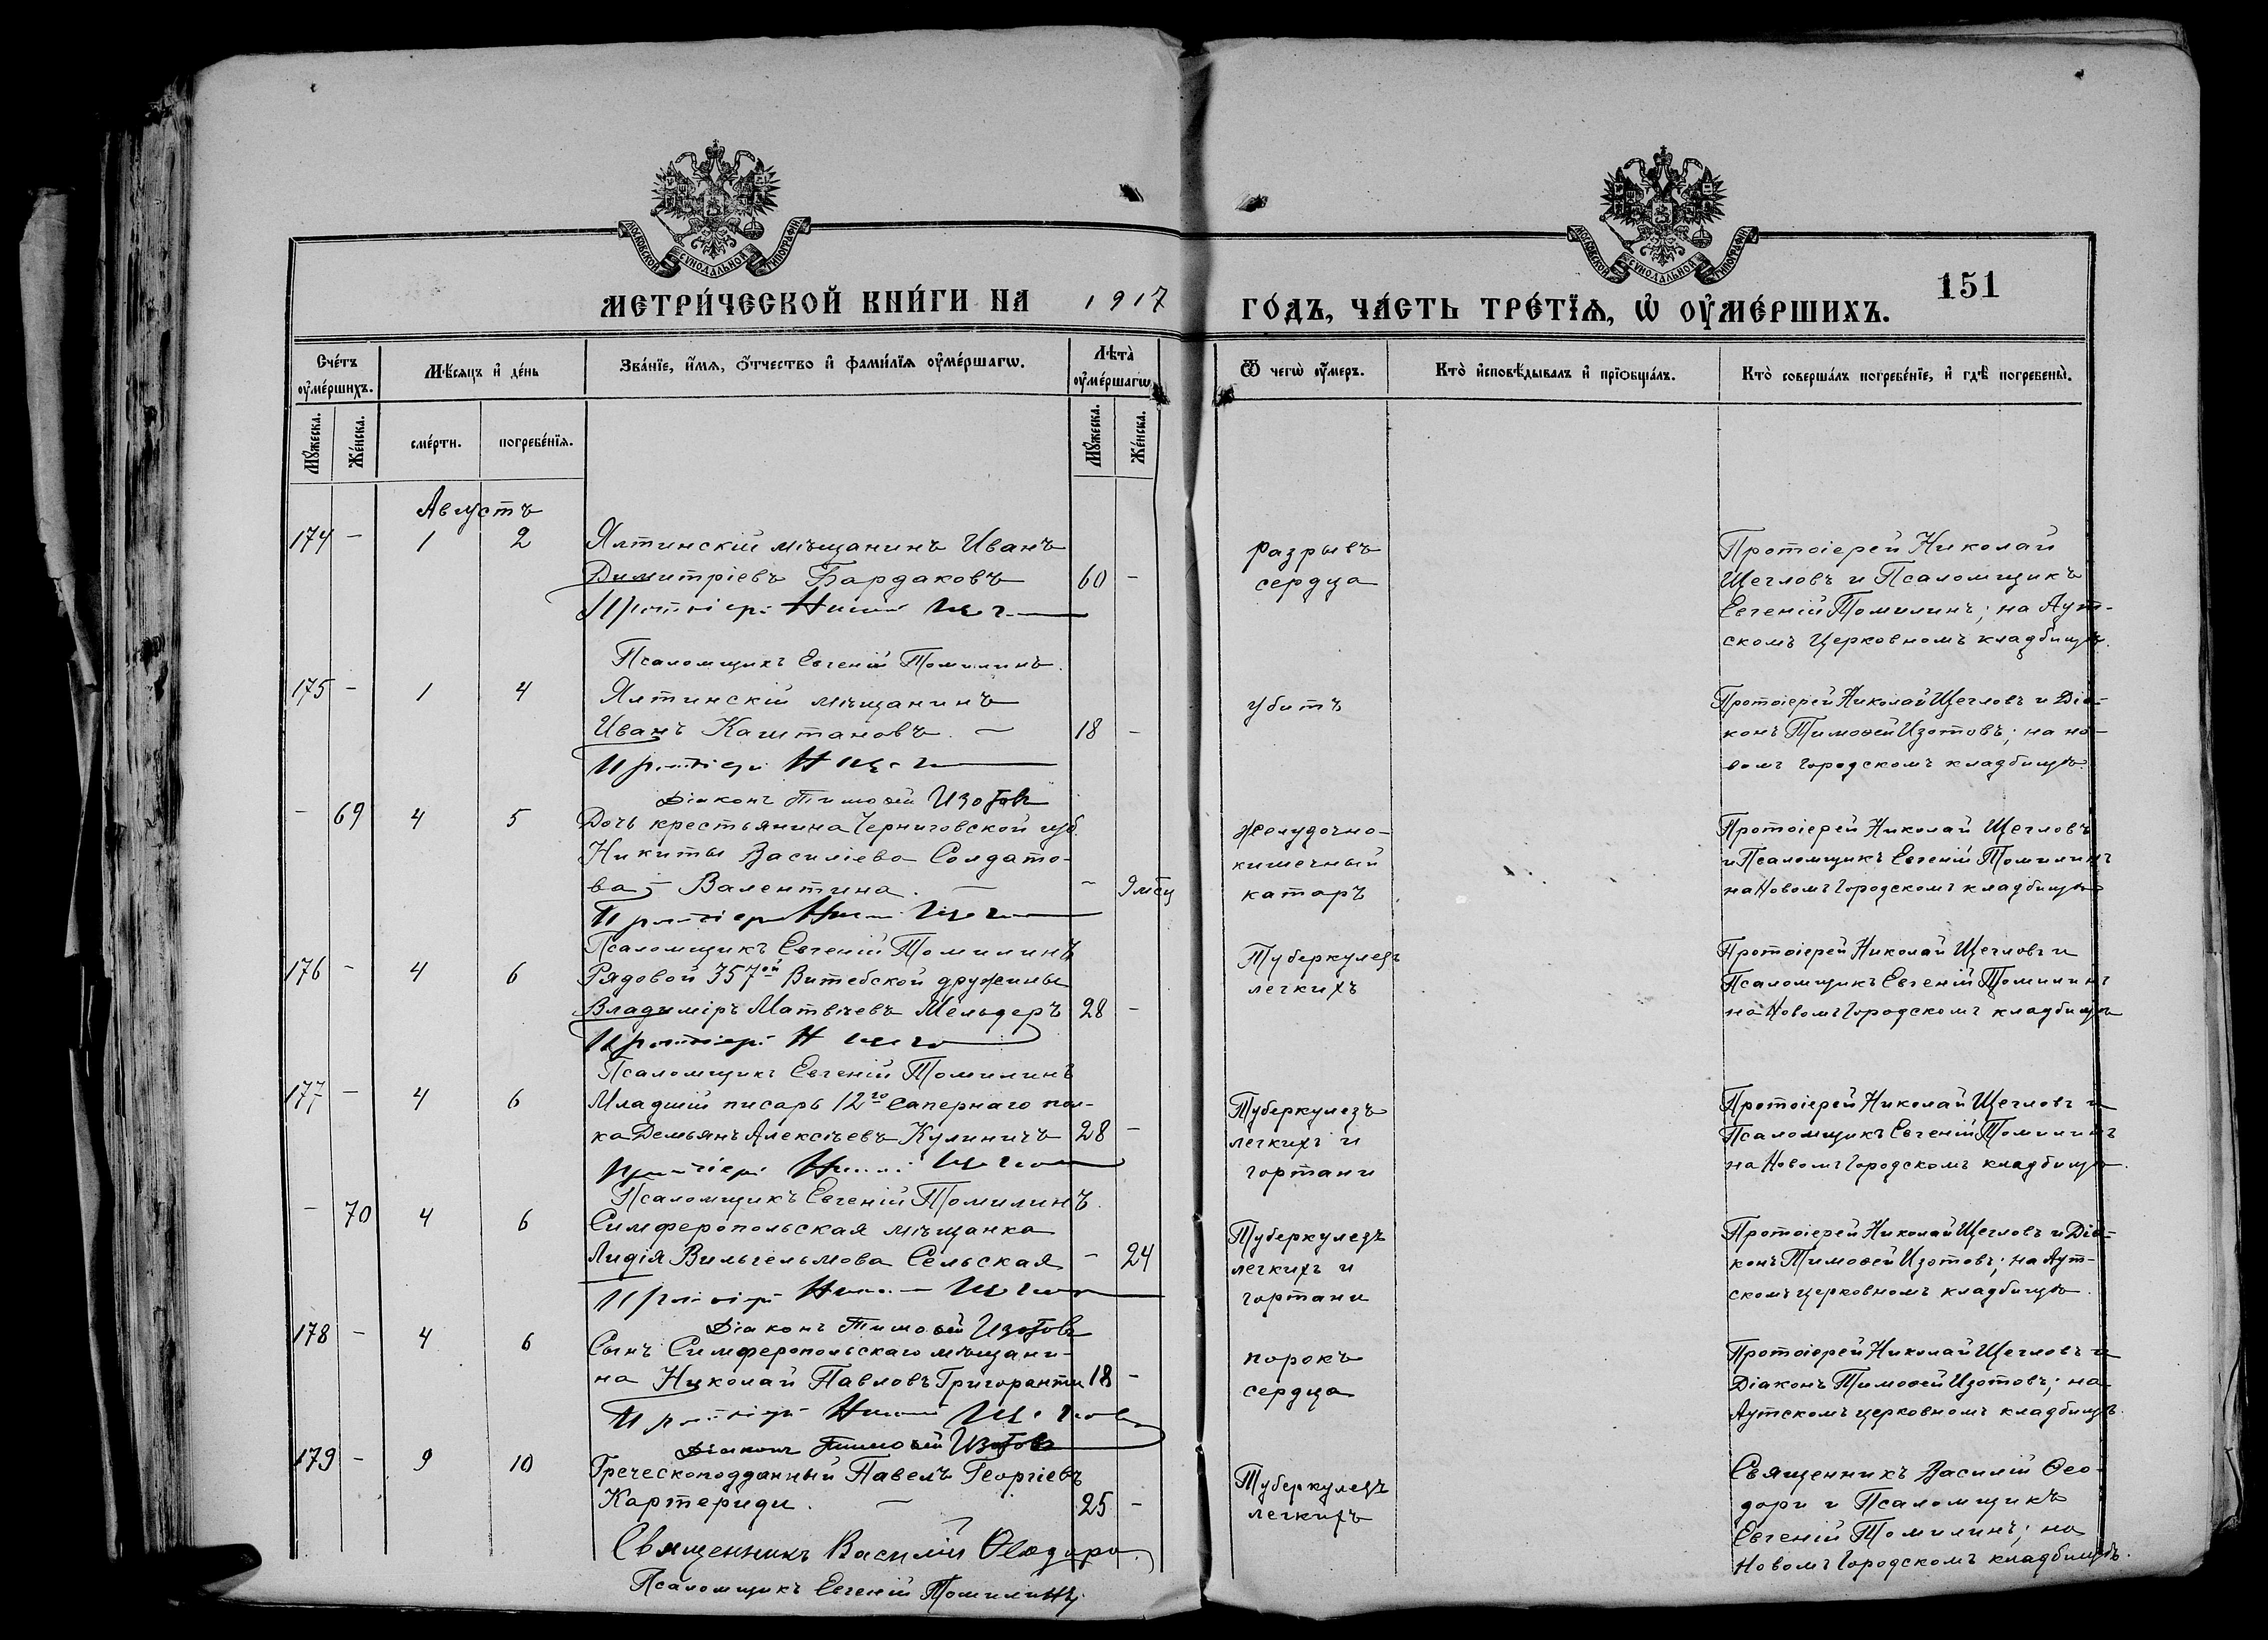 МОСКОВСКОЙ СѴНОДАЛЬНОЙ ТИПОГРАФІИ
МОСКОВСКОЙ СѴНОДАЛЬНОЙ ТИПОГРАФІИ
МЕТРИ́ЧЕСКОЙ КНИ́ГИ НА 1917 ГО́ДЪ, ЧА́СТЬ ТРЕ́ТЇѦ, Ѡ҆ ОУ҆МЕ́РШИХЪ.
151
Сче́тъ оу҆ме́ршихъ.
Мѣ́сѧцъ и҆ де́нь
Зва́нїе, и҆́мѧ, ѻ҆́тчество и҆ фамѝлїѧ оу҆ме́ршагѡ.
Лѣта̀ оу҆ме́ршагѡ
Ѿ чегѡ̀ оу҆́меръ.
Кто̀ и҆сповѣ́дывалъ и҆ прїѻбща́лъ.
Кто̀ соверша́лъ погребе́нїе, и҆ гдѣ̀ погребены̀.
Мꙋ́жеска.
Же́нска.
сме́рти.
погребе́нїѧ.
Мꙋ́жеска.
Же́нска.
Августъ
174 - 1 2 Ялтинскій мѣщанинъ Иванъ
Димитріевъ Бардаковъ 60 -
Псаломщикъ Евгеній Томилинъ.
разрывъ
сердца
Протоіерей Николай
Щегловъ и Псаломщикъ
Евгеній Томилинъ; на Аут-
скомъ Церковномъ кладбищѣ.
175 - 1 4 Ялтинскій мѣщанинъ
Иванъ Каштановъ. 18 -
Діаконъ Тимоѳей Изотовъ
убитъ
Протоіерей Николай Щегловъ и Діа-
конъ Тимоѳей Изотовъ; на но-
вомъ городскомъ кладбищѣ.
- 69 4 5 Дочь крестьянина Черниговской губ.
Никиты Василіева Солдато-
ва - Валентина. - 9 мѣсц
Псаломщикъ Евгеній Томилинъ
желудочно-
кишечный
катаръ
Протоіерей Николай Щегловъ
и Псаломщикъ Евгеній Томилинъ
на Новомъ Городскомъ кладбищѣ
176 - 4 6 Рядовой 357ой Витебской дружины
Владиміръ Матвѣевъ Мельдеръ 28 -
Псаломщикъ Евгеній Томилинъ
Туберкулезъ
легкихъ
Протоіерей Николай Щегловъ и
Псаломщикъ Евгеній Томилинъ
на Новомъ Городскомъ кладбищѣ
177 - 4 6 Младшій писарь 12го Сапернаго пол-
ка Демьянъ Алексѣевъ Кулиничъ 28 -
Псаломщикъ Евгеній Томилинъ.
Туберкулезъ
легкихъ и
гортани
Протоіерей Николай Щегловъ и
Псаломщикъ Евгеній Томилинъ
на Новомъ Городскомъ кладбищѣ.
- 70 4 6 Симферопольская мѣщанка
Лидія Вильгельмова Сельская - 24
Діаконъ Тимоѳей Изотовъ
Туберкулезъ
легкихъ и
гортани
Протоіерей Николай Щегловъ и Діа-
конъ Тимоѳей Изотовъ; на Аут-
скомъ церковномъ кладбищѣ.
178 - 4 6 Сынъ Симферопольскаго мѣщани-
на Николай Павловъ Григоранти 18 -
Діаконъ Тимоѳей Изотовъ
порокъ
сердца
Протоіерей Николай Щегловъ и
Діаконъ Тимоѳей Изотовъ; на
Аутскомъ церковномъ кладбищѣ.
179 - 9 10 Греческоподданный Павелъ Георгіевъ
Картериди. 25 -
Священникъ Василій Ѳеодори
Псаломщикъ Евгеній Томилинъ.
Туберкулезъ
легкихъ
Священникъ Василій Ѳео-
дори и Псаломщикъ
Евгеній Томилинъ; на
Новомъ Городскомъ кладбищѣ.